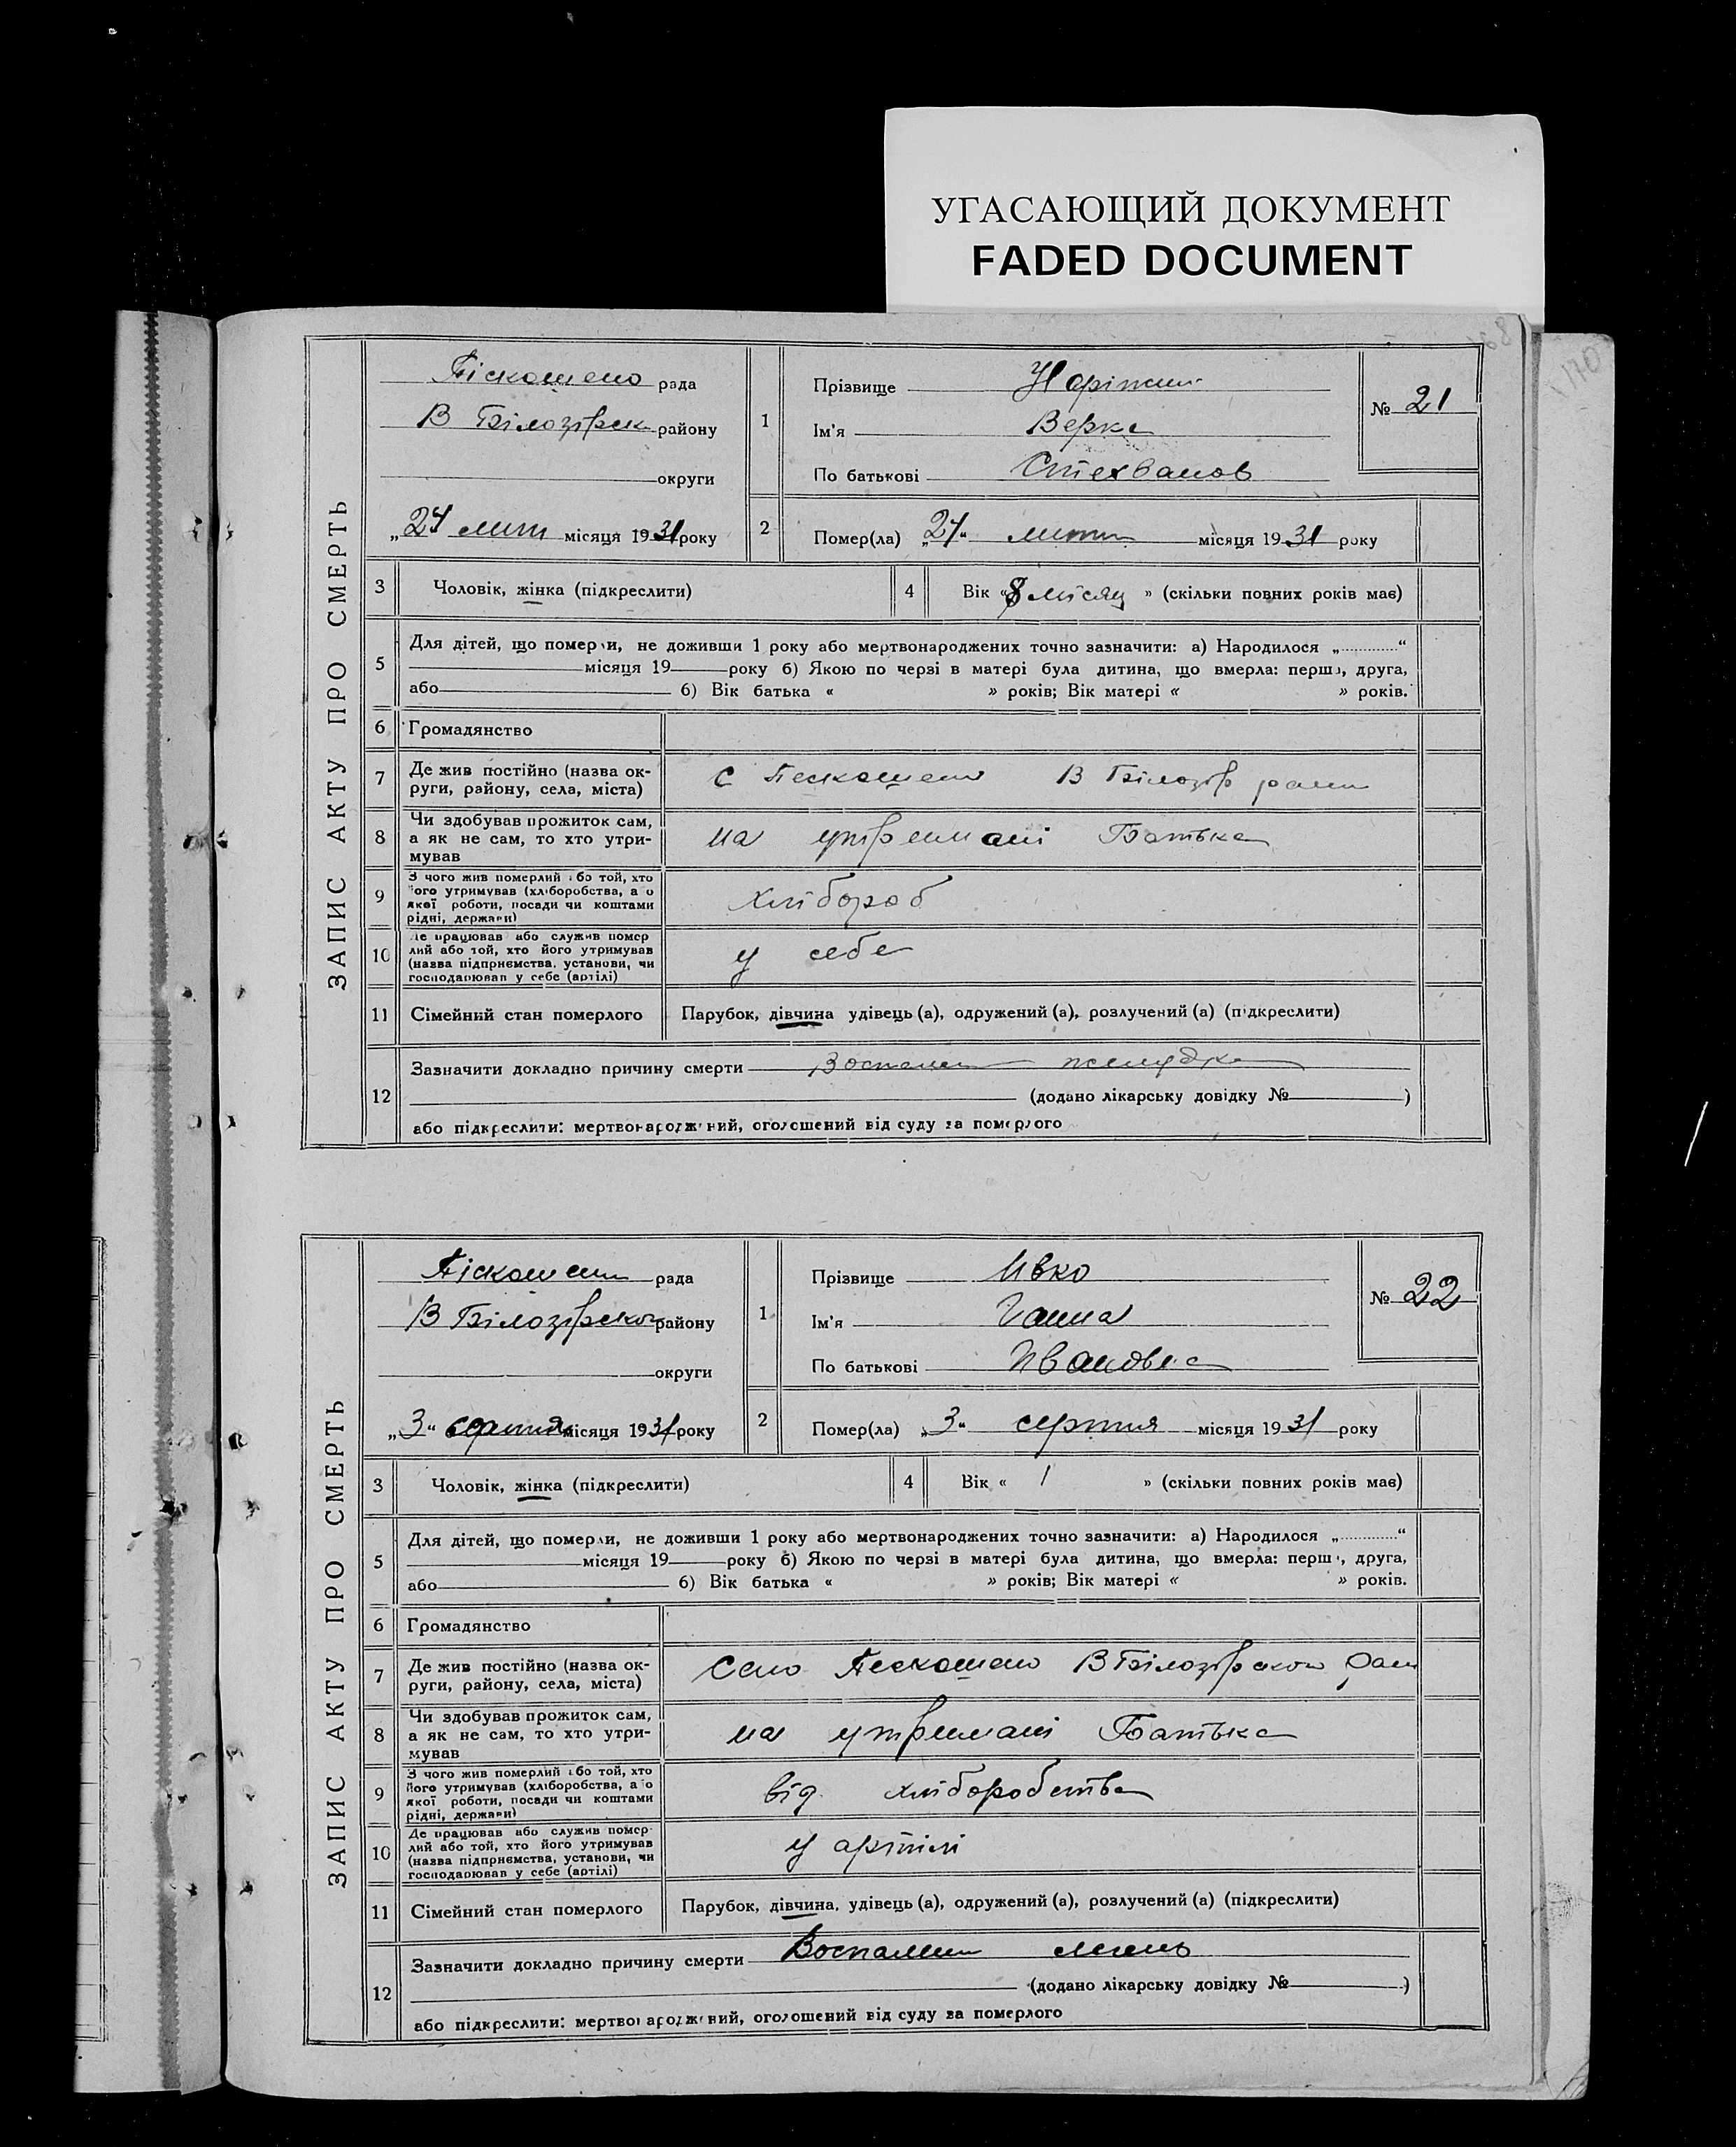 УГАСАЮЩИЙ ДОКУМЕНТ
FADED DOCUMENT
ЗАПИС АКТУ ПРО СМЕРТЬ
рада
В Білозірск району
округи
1
Прізвище
Ім'я Верка
По батькові Стехванов
№ 21
місяця 1931 року
2
Помер(ла) місяця 1931 року
3
Чоловік, жінка (підкреслити)
4
Вік «8 місяц » (скільки повних років має)
5
Для дітей, що померли, не доживши 1 року або мертвонароджених точно зазначити: а) Народилося „ “
місяця 19 року б) Якою по черзі в матері була дитина, що вмерла: перша, друга,
або б) Вік батька « » років; Вік матері « » років.
6
Громадянство
7
Де жив постійно (назва ок-
руги, району, села, міста)
с В Білозір
8
Чи здобував прожиток сам,
а як не сам, то хто утри-
мував
на утримані Батька
9
З чого жив померлий або той, хто
його утримував (хліборобства, або
якої роботи, посади чи коштами
рідні, держави)
хлібороб
10
Де працював або служив помер
лий або той, хто його утримував
(назва підприємства, установи, чи
господарював у себе (артілі)
у себе
11
Сімейний стан померлого
Парубок, дівчина удівець (а), одружений (а), розлучений (а) (підкреслити)
12
Зазначити докладно причину смерти желудка
(додано лікарську довідку № )
або підкреслити: мертвонароджений, оголошений від суду за померлого
ЗАПИС АКТУ ПРО СМЕРТЬ
рада
В Білозірськ району
округи
1
Прізвище Ивко
Ім'я Ганна
По батькові Ивановна
№ 22
„3“ серпня місяця 1931 року
2
Помер(ла) „3“ серпня місяця 1931 року
3
Чоловік, жінка (підкреслити)
4
Вік « 1 » (скільки повних років має)
5
Для дітей, що померли, не доживши 1 року або мертвонароджених точно зазначити: а) Народилося „ “
місяця 19 року б) Якою по черзі в матері була дитина, що вмерла: перша, друга,
або б) Вік батька « » років; Вік матері « » років.
6
Громадянство
7
Де жив постійно (назва ок-
руги, району, села, міста)
Село
8
Чи здобував прожиток сам,
а як не сам, то хто утри-
мував
на утримані Батька
9
З чого жив померлий або той, хто
його утримував (хліборобства, або
якої роботи, посади чи коштами
рідні, держави)
від хліборобства
10
Де працював або служив помер-
лий або той, хто його утримував
(назва підприємства, установи, чи
господарював у себе (артілі)
у артілі
11
Сімейний стан померлого
Парубок, дівчина, удівець (а), одружений (а), розлучений (а) (підкреслити)
12
Зазначити докладно причину смерти
(додано лікарську довідку № )
або підкреслити: мертвонароджений, оголошений від суду за померлого